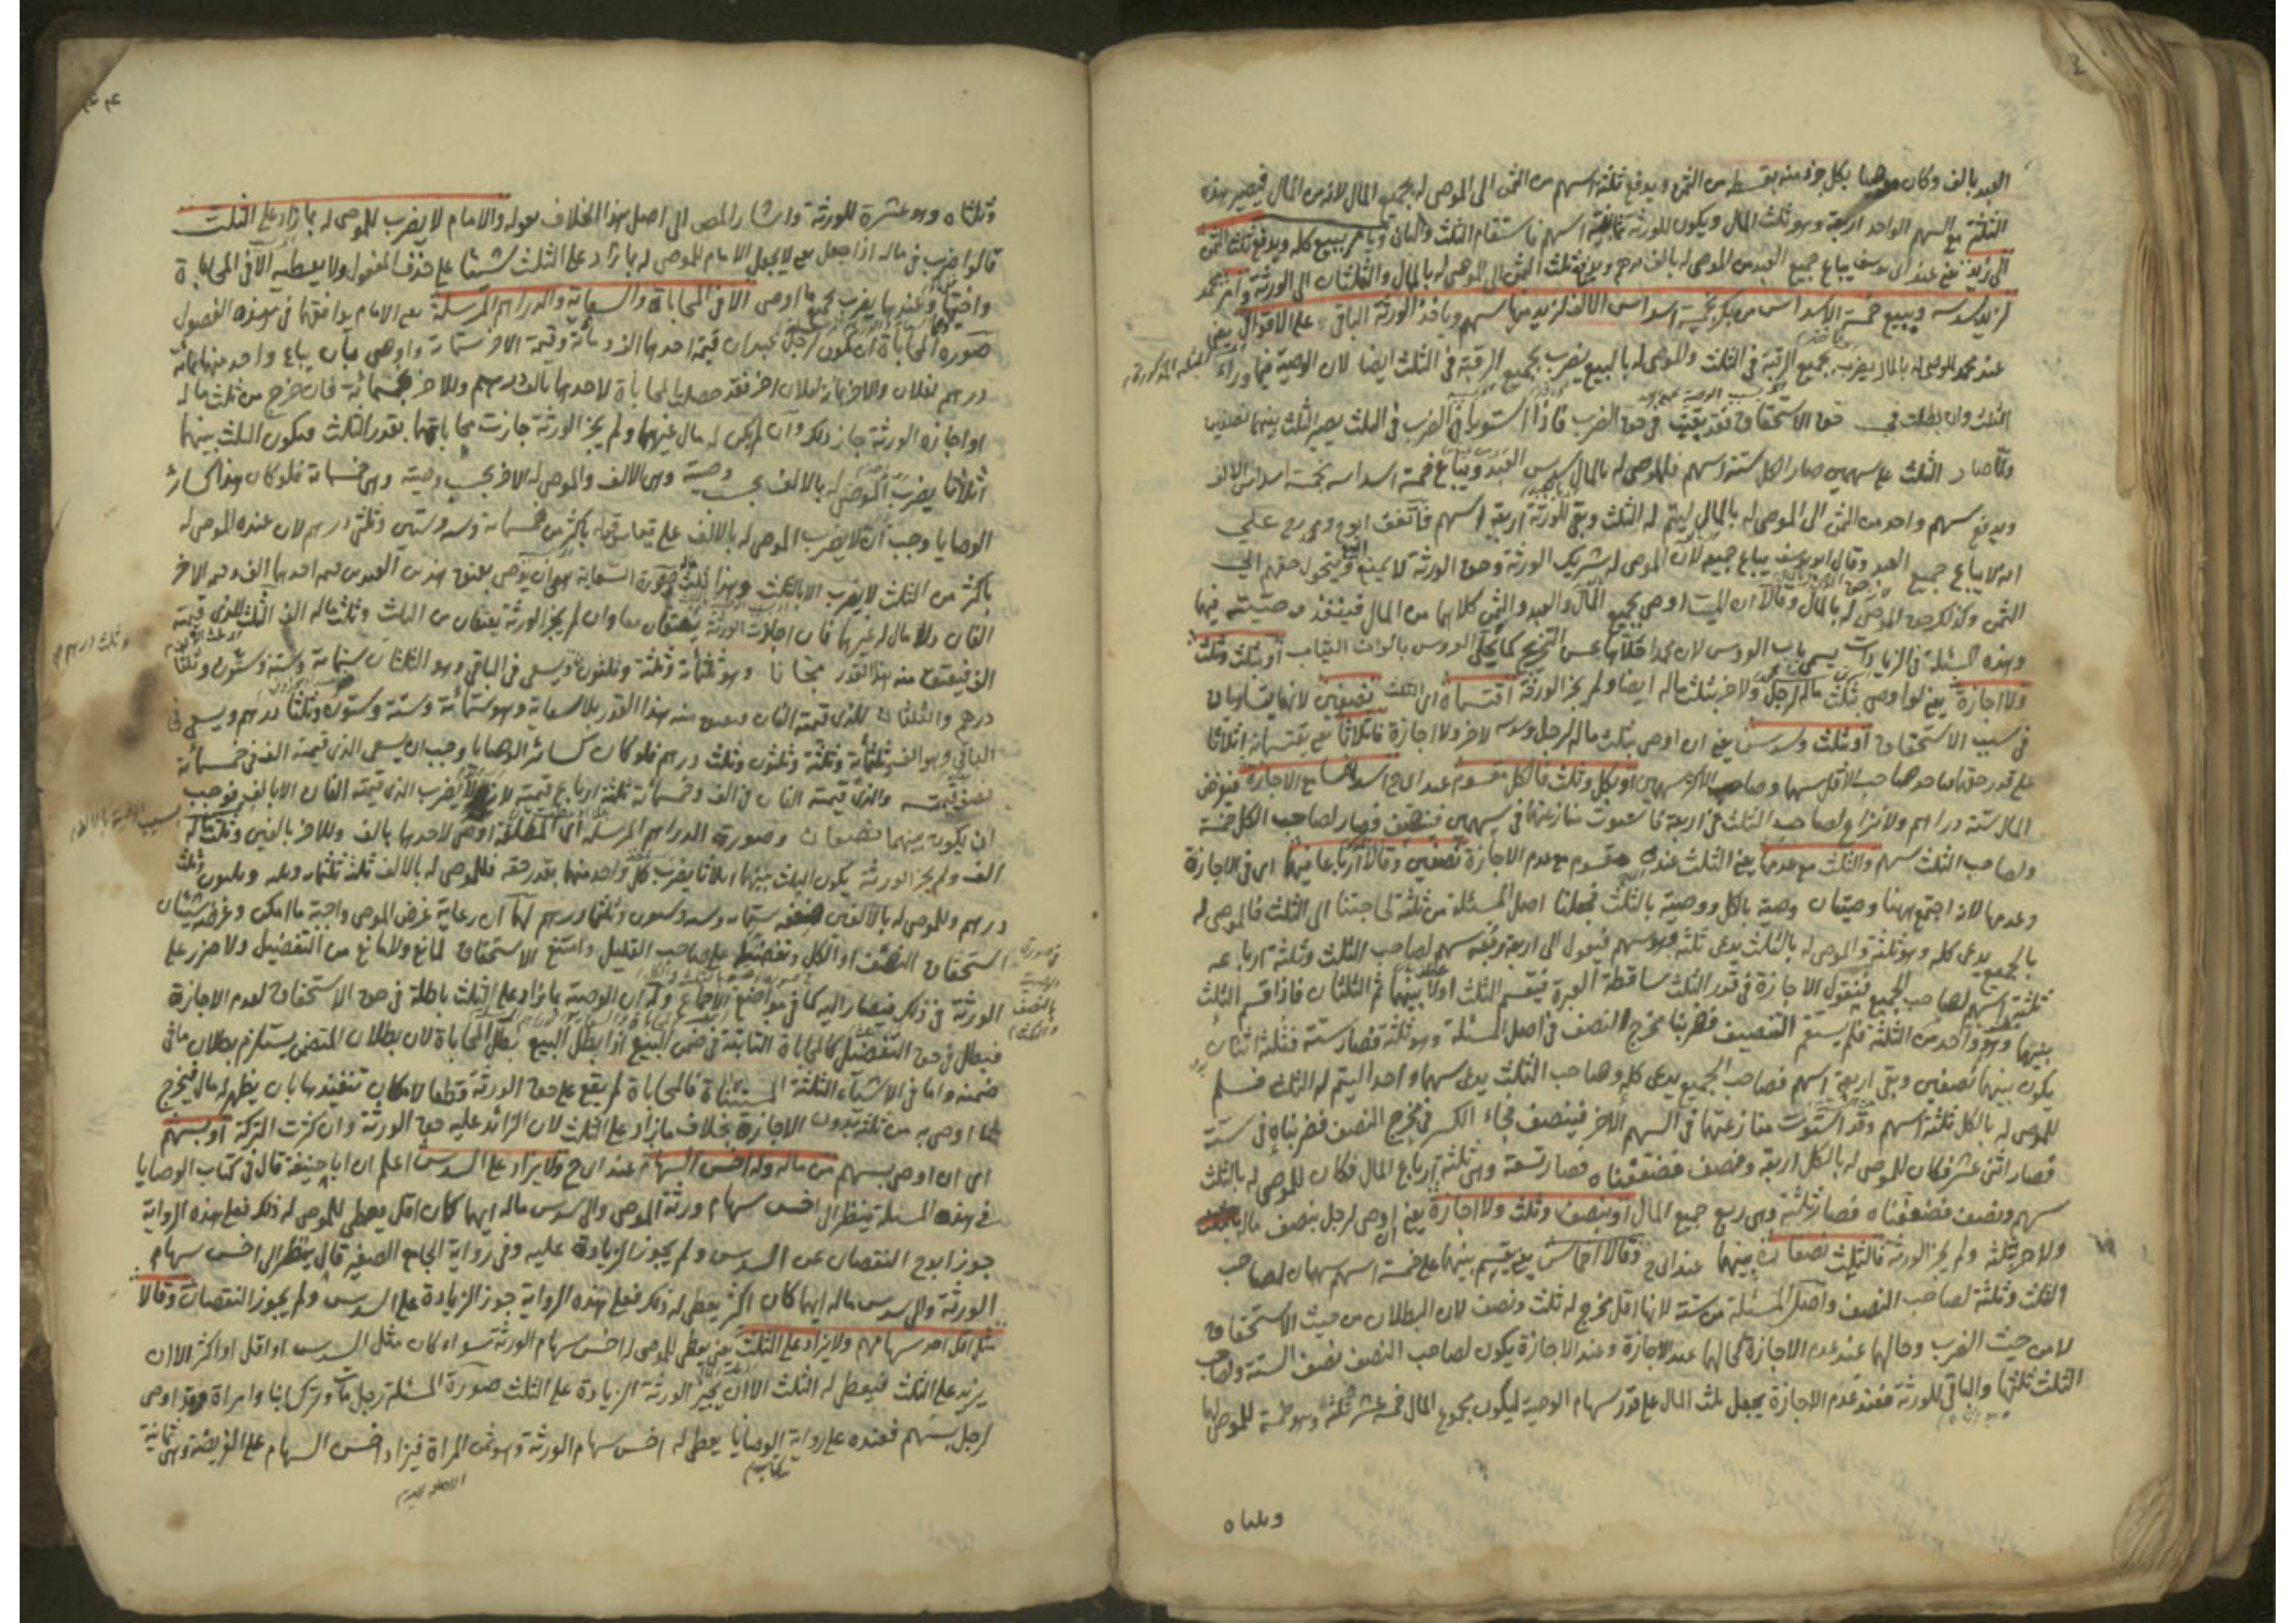 العبد بالف وكان موصيا بكل جزء منه بقسطه من الثمن ويدفع ثلثة اسهم من الثمن الى الموصى له بجميع المال لانه من المال فيصير هذه
الثلثة مع السهم الواحد اربعة وهو ثلث المال ويكون للورثة ثمانية اسهم فاستقام الثلث والثلثان ويأمر ببيع كله ويدفع ثلث الثمن
الى زيد يعني عند ابى يوسف يباع جميع العبد من الموصى له بالف درهم ويدفع ثلث الثمن الى الموصى له بالمال والثلثان الى الورثة وامر محمد
لزيد سدسه ويبيع خمسة الاسداس من بكر بخمسة اسداس الالف لزيد منها سهم وياخذ الورثة الباقى على الاقوال يعني
عند محمد الموصى له بالمال يضرب بجميع الرقبة فى الثلث والموصى له بالبيع يضرب بجميع الرقبة فى الثلث ايضا لان الوصية فيما وراء
الثلث وان بطلت فى حق الاستحقاق فقد بقيت فى حق الضرب فاذا استويا فى الضرب فى الثلث يصير الثلث بينهما نصفين
ولما صار الثلث على سهمين صار الكل ستة اسهم فللموصى له بالمال سدس العبد ويباع خمسة اسداسه بخمسة اسداس الالف
ويدفع سهم واحد من الثمن الى الموصى له بالمال ليتم له الثلث وبقى للورثة اربعة اسهم فاتفق ابو ح ومحمد رح على
انه لا يباع جميع العبد وقال ابو يوسف يباع جميعه لان الموصى له شريك الورثة وحق الورثة لا يمنع البيع ويتحول حقهم الى
الثمن وكذلك حق الموصى له بالمال وقالا ان الميت اوصى بجميع المال والعبد والثمن كلاهما من المال فينفذ وصيته فيها
وهذه المسئلة فى الزيادات يسمى باب العروس لان محمدا حلاها بحسن التخريج كما يحلى العروس بالوان الثياب او بثلث وثلث
ولا اجازة يعني لو اوصى بثلث ماله لرجل ولاخر بثلث ماله ايضا ولم يجز الورثة اقتسماه اى الثلث نصفين لانهما يتساويان
فى سبب الاستحقاق او بثلث وسدس يعني ان اوصى بثلث ماله لرجل وسدسه لاخر ولا اجازة فاثلاثا يعني يقتسمانه اثلاثا
على قدر حقهما فاحد صاحب الاقل سهما وصاحب الاكثر سهمين او بكل وثلث فالكل مقسوم عند ابى ح اسداسا مع الاجازة فنفرض
المال ستة دراهم ولا نزاع لصاحب الثلث فى اربعة فاستوت منازعتهما فى سهمين فينصف فصار لصاحب الكل خمسة
ولصاحب الثلث سهم والثلث مع عدمها يعني الثلث عنده مقسوم مع عدم الاجازة نصفين وقالا ارباعا فيهما اى فى الاجازة
وعدمها لانه اجتمع ههنا وصيتان وصية بالكل ووصية بالثلث فجعلنا اصل المسئلة من ثلثة لحاجتنا الى الثلث فالموصى له
بالجميع يدعى كله وهو ثلثة والموصى له بالثلث يدعى ثلثه وهو سهم فيعول الى اربعة فربعه سهم لصاحب الثلث وثلثة ارباعه
ثلثة اسهم لصاحب الجميع فنقول الاجازة فى قدر الثلث ساقطة العبرة فيقسم الثلث اولا بينهما ثم الثلثان فاذا قسم الثلث
بينهما وهو واحد من الثلثة فلم يستقم التنصيف فضربنا مخرج النصف فى اصل المسئلة وهو ثلثة فصار ستة فثلثه اثنان
يكون بينهما نصفين وبقى اربعة اسهم فصاحب الجميع يدعى كله وصاحب الثلث يدعى سهما واحدا ليتم له الثلث فسلم
للموصى له بالكل ثلثة اسهم وقد استوت منازعتهما فى السهم الاخر فينصف فجاء الكسر فى مخرج النصف فضربناه فى ستة
فصار اثنى عشر فكان للموصى له بالكل اربعة ونصف فضعفناه فصار تسعة وهى ثلثة ارباع المال فكان للموصى له بالثلث
سهم ونصف فضعفناه فصار ثلثة وهى ربع جميع المال او بنصف وثلث ولا اجازة يعني ان اوصى لرجل بنصف ماله
ولاخر بثلثه ولم يجز الورثة فالثلث نصفان بينهما عند ابى ح وقالا اخماس يعني يقسم بينهما على خمسة اسهم سهمان لصاحب
الثلث وثلثة لصاحب النصف واصل المسئلة من ستة لانها اقل مخرج له ثلث ونصف لان البطلان من حيث الاستحقاق
لا من حيث الضرب وحالهما عند عدم الاجازة كحالهما عند الاجازة وعند الاجازة يكون لصاحب النصف نصف الستة ولصاحب
الثلث ثلثها والباقى للورثة فعند عدم الاجازة يجعل ثلث المال على قدر سهام الوصية ليكون مجموع المال خمسة عشر ثلثه وهو خمسة للموصى لهما
وثلثاه
وثلثاه وهو عشرة للورثة واشار المص الى اصل هذا الخلاف بقوله والامام لا يضرب للموصى له بما زاد على الثلث
قالوا ضرب فى ماله اذا جعل يعني لا يجعل الامام للموصى له بما زاد على الثلث شيئا على حذف المفعول ولا يعطيه الا فى المحاباة
واختها وعندهما يضرب بجميع ما اوصى الا فى المحاباة والسعاية والدراهم المرسلة يعني الامام يوافقهما فى هذه الفصول
صورة المحاباة ان يكون لرجل عبدان قيمة احدهما الف ومائة وقيمة الاخر ستمائة واوصى بأن يباع واحد منهما بمائة
درهم لفلان والاخر بمائة لفلان اخر فقد حصلت المحاباة لاحدهما بالف درهم وللاخر بخمسمائة فان خرج من ثلث ماله
او اجازه الورثة جاز ذلك وان لم يكن له مال غيرهما ولم يجز الورثة جازت محاباتهما بقدر الثلث فيكون الثلث بينهما
اثلاثا يضرب الموصى له بالالف بحسب وصيته وهى الالف والموصى له الاخر بحسب وصيته وهى خمسمائة فلو كان هذا كسائر
الوصايا وجب ان لا يضرب الموصى له بالالف على قياس قوله باكثر من خمسمائة وستة وستين وثلثى درهم لان عنده الموصى له
باكثر من الثلث لا يضرب الا بالثلث وهذا ثلث صورة السعاية هى ان يوصى بعتق هذين العبدين قيمة احدهما الف وقيمة الاخر
الفان ولا مال له غيرهما فان اجازت الورثة يعتقان معا وان لم يجز الورثة يعتقان من الثلث وثلث ماله الف الثلث للذى قيمته
الف فيعتق منه هذا القدر مجانا وهو ثلثمائة وثلثة وثلثون ويسعى فى الباقى وهو الثلثان ستمائة وستة وستون وثلثا
درهم والثلثان للذى قيمته الفان فيعتق منه هذا القدر بلا سعاية وهو ستمائة وستة وستون وثلثا درهم ويسعى فى
الباقى وهو الف وثلثمائة وثلثة وثلثون وثلث درهم فلو كان كسائر الوصايا وجب ان يسعى الذى قيمته الف فى خمسمائة
نصف قيمته والذى قيمته الفان فى الف وخمسمائة ثلثة ارباع قيمته لانه لا يضرب الذى قيمته الفان الا بالف فوجب
ان يكون بينهما نصفان وصورة الدراهم المرسلة اى المطلقة اوصى لاحدهما بالف وللاخر بالفين وثلث ماله
الف ولم يجز الورثة يكون الثلث بينهما اثلاثا يضرب كل واحد منهما بقدر حقه فللموصى له بالالف ثلث ثلثمائة وثلثة وثلثون وثلث
درهم وللموصى له بالالفين ضعفه ستمائة وستة وستون وثلثا درهم لهما ان رعاية غرض الموصى واجبة ما امكن وغرضه شيئان
استحقاق النصف او الكل وتفضيله على صاحب القليل وامتنع الاستحقاق لمانع ولا مانع من التفضيل ولا ضرر على
الورثة فى ذلك فيصار اليه كما فى مواضع الاجماع وله ان الوصية بما زاد على الثلث باطلة فى حق الاستحقاق لعدم الاجازة
فيبطل فى حق التفضيل كالمحاباة الثابتة فى ضمن البيع اذا بطل البيع بطل المحاباة لان بطلان المتضمن يستلزم بطلان ما فى
ضمنه واما فى الاشياء الثلثة المستثناة فالمحاباة لم يقع على حق الورثة قطعا لامكان تنفيذها بان يظهر له مال فيخرج
ما اوصى به من ثلثه بدون الاجازة بخلاف ما زاد على الثلث لان الزائد عليه حق الورثة وان كثرت التركة او بسهم
اى ان اوصى بسهم من ماله وله اخس السهام عند ابى ح ولا يزاد على السدس اعلم ان ابا حنيفة قال فى كتاب الوصايا
فى هذه المسئلة ينظر الى اخس سهام ورثة الموصى والى سدس ماله ايهما كان اقل يعطى للموصى له ذلك فعلى هذه الرواية
جوز ابو ح النقصان عن السدس ولم يجوز الزيادة عليه وفى رواية الجامع الصغير قال ينظر الى اخس سهام
الورثة والى سدس ماله ايهما كان اكثر يعطى له ذلك فعلى هذه الرواية جوز الزيادة على السدس ولم يجوز النقصان وقالا
مثل اقل احد سهامهم ولا يزاد على الثلث يعني يعطى للموصى له اخس سهام الورثة سواء كان مثل السدس او اقل او اكثر الا ان
يزيد على الثلث فيعطى له الثلث الا ان يجيز الورثة الزيادة على الثلث صورة المسئلة رجل مات وترك ابنا وامراة وقد اوصى
لرجل بسهم فعنده على رواية الوصايا يعطى له اخس سهام الورثة وهو ثمن المراة فيزاد اخس السهام على الفريضة وهى ثمانية